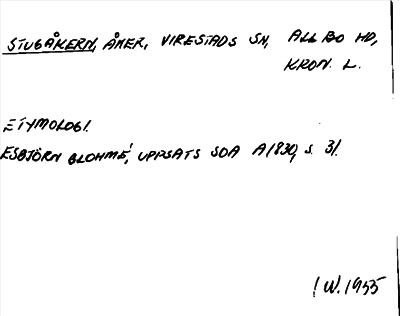 STUGÅKERN, ÅKER, VIRESTADS SN, ALLBO HD,
KRON. L.
ETYMOLOGI.
ESBJÖRN BLOHMÉ, UPPSATS SOA A1830, S. 31.
I W. 1955